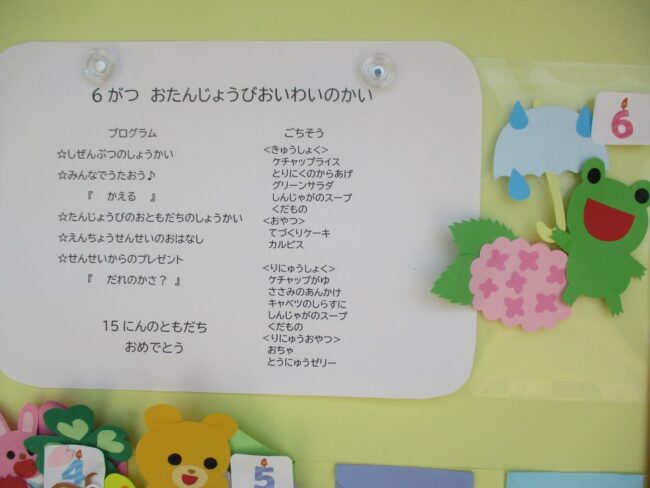 6がつ おたんじょうびおいわいのかい
プログラム
☆しぜんぶつのしょうかい
☆みんなでうたおう♪
『 かえる 』
☆たんじょうびのおともだちのしょうかい
☆えんちょうせんせいのおはなし
☆せんせいからのプレゼント
『 だれのかさ？ 』
15にんのともだち
おめでとう
ごちそう
<きゅうしょく>
ケチャップライス
とりにくのからあげ
グリーンサラダ
しんじゃがのスープ
くだもの
<おやつ>
てづくりケーキ
カルピス
<りにゅうしょく>
ケチャップがゆ
ささみのあんかけ
キャベツのしらすに
しんじゃがのスープ
くだもの
<りにゅうおやつ>
おちゃ
とうにゅうゼリー
6
4
5